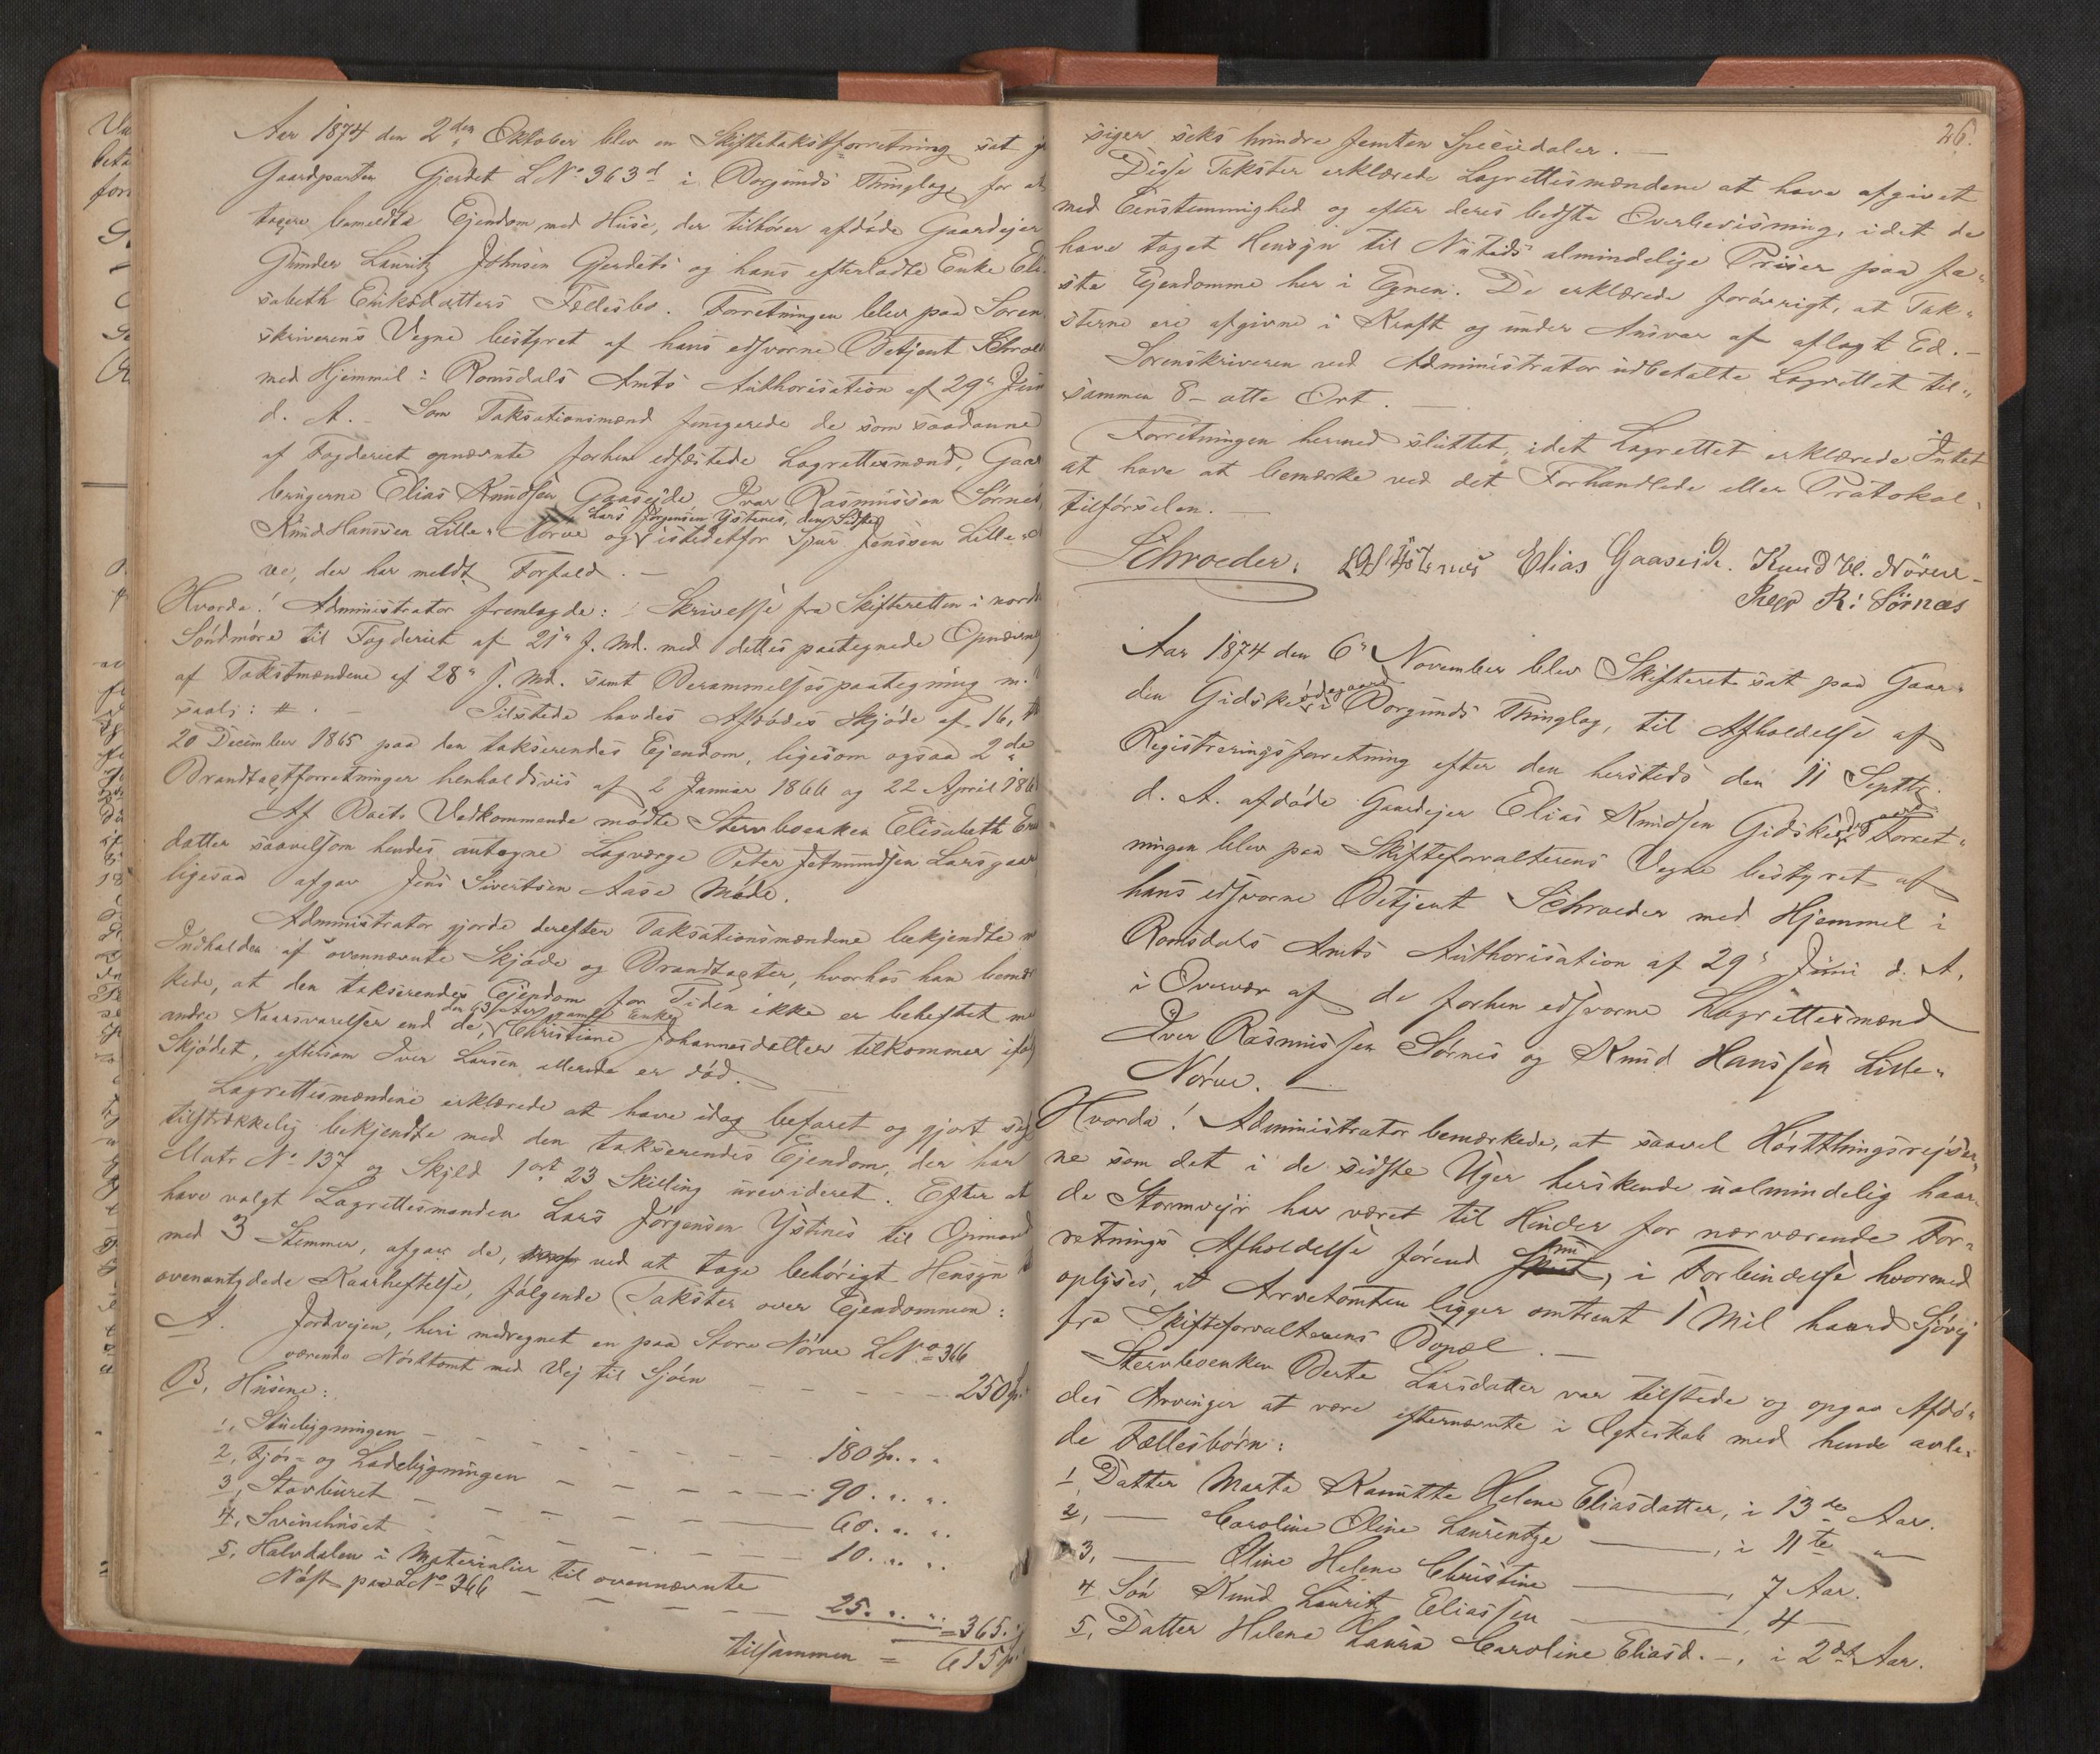 Aar 1874 den 2den Oktober blev en Skiftetakstforretning sat
Gaardparten Gjerdet LNo 363d i Borgunds Thinglag for at
taxere bemeldte Ejendom med Huse, der tilhører afdøde Gaardejer
Gunder Lauritz Johnsen Gjerdets og hans efterladte Enke Eli-
sabeth Eriksdatters Fællesbo. Forretningen blev paa Soren-
skriverens Vegne bestyret af hans edsvorne Betjent Schroe
med Hjemmel i Romsdals Amts Authorisation af 29de Juni
d. A. - Som Taksationsmænd fungerede de som saadanne
af Fogderiet opnævnte forhen edfæstede Lagrettesmænd, Gaar
brugerne Elias Knudsen Gaaseide, Iver Rasmussen Sørnes,
Lars Jørgensen Ystenes, den Sidste
Knud Hanssen Lille-Nørve og istedetfor Sjur Jenssen Lille-
ve, der har meldt Forfald. -
Hvorda! Administrator fremlagde: Skrivelse fra Skifteretten i nordre
Søndmøre til Fogderiet af 21de f. Md. med dettes paategnede Opnævnelse
af Takstmændene af 28de f. Md. samt Berammelsespaategning m.
saalj: # . - Tilstede havdes Afdødes Skjøde af 16,
20 December 1865 paa den takserendes Ejendom, ligesom ogsaa 2de
Brandtaxtforretninger henholdsvis af 2 Januar 1866 og 22 April 186
Af Boets Vedkommende mødte Stervboenken Elisabeth
datter saavelsom hendes antagne Lagværge Peter Jetmundsen Larsgaar
ligesaa afgav Jens Sivertsen Aase Møde.
Administrator gjorde derefter Taksationsmændene bekjendte
Indholden af ovennævnte Skjøde og Brandtaxter, hvorhos han bemær
kede, at den takserendes Ejendom for Tiden ikke er beheftet me
den 63 Aar gamle Enke
andre Kaarsvarelser end de, Christiane Johannesdatter tilkommer ifølge
Skjødet, eftersom Iver Larsen allerede er død.
Lagrettesmændene erklærede at have idag befaret og gjort sig
tilstrækkelig bekjendte med den takserendes Ejendom, der har
Matr No 137 og Skyld 1 ort 23 Skilling urevideret. Efter at
have valgt Lagrettesmanden Lars Jørgensen Ystenes til Opmand
med 3 Stemmer, afgav de, ved at tage behørigt Hensyn
ovenantydede Kaarheftelse, følgende Takster over Ejendommen:
A. Jordvejen, heri medregnet en paa Store Nørve LNo 366
værende Nøsttomt med Vej til Sjøen - - - - 250
B. Husene:
1, Stuebygningen - - - - 180 Sp. " "
2, Fjøs- og Ladebygningen - - - - 90. " "
3, Stavburet - - - - 60. " "
4, Svinehuset - - - - 10. " "
5, Halvdelen i Materialier til ovennævnte
Nøst paa LNo 366 - - - - 25. " " = 365.
tilsammen = 615
26.
siger seks hundre femten Speciedaler. -
Disse Takster erklærede Lagrettesmændene at have afgivet
med Eenstemmighed og efter deres bedste Overbevisning, idet de
have taget Hensyn til Nutids almindelige Priser paa fa-
ste Ejendomme her i Egnen. De erklærede forøvrigt, at Tak-
sterne ere afgivne i Kraft og under Ansvar af aflagt Ed. -
Sorenskriveren ved Administrator udbetalte Lagrettet til-
sammen 8 - otte Ort. -
Forretningen hermed sluttet, idet Lagrettet erklærede Intet
at have at bemærke ved det Forhandlede eller Protokol-
tilførselen. -
Schroeder. Elias Gaaseide. Knud H. Nörve -
R: Sörnæs
Aar 1874 den 6te November blev Skifteret sat paa Gaar-
den Giske ødegaard i Borgunds Thinglag, til Afholdelse af
Registreringsforretning efter den hersteds den 11 Septbr.
d. A. afdøde Gaardejer Elias Knudsen Gidske ødegaard. Forret-
ningen blev paa Skifteforvalterens Vegne bestyret af
hans edsvorne Betjent Schroeder med Hjemmel i
Romsdals Amts Authorisation af 29de Juni d. A.
i Overvær af de forhen edsvorne Lagrettesmænd
Iver Rasmussen Sørnes og Knud Hanssen Lille-
Nørve. -
Hvorda! Administrator bemærkede, at saavel Høstthingsrejser-
ne som det i de sidste Uger herskende ualmindelig haar-
de Stormvejr har været til Hinder for nærværende For-
retnings Afholdelse førend nu, i Forbindelse hvormed
oplyses, at Arvetomten ligger omtrent 1 Mil haard Sjøvej
fra Skifteforvalterens Bopæl. -
Stervboenken Berte Larsdatter var tilstede og opgav Afdø-
des Arvinger at være efternævnte i Egteskab med hende avle-
de Fællesbørn:
1, Datter Marte Knutte Helene Eliasdatter, i 13de Aar.
2, - Caroline Oline Laurentze -, i 11te "
3, - Oline Helene Christine -, 7 Aar.
4 Søn Knud Lauritz Eliassen -, 4 -
5, Datter Helene Laura Caroline Eliasd. -, i 2det Aar.